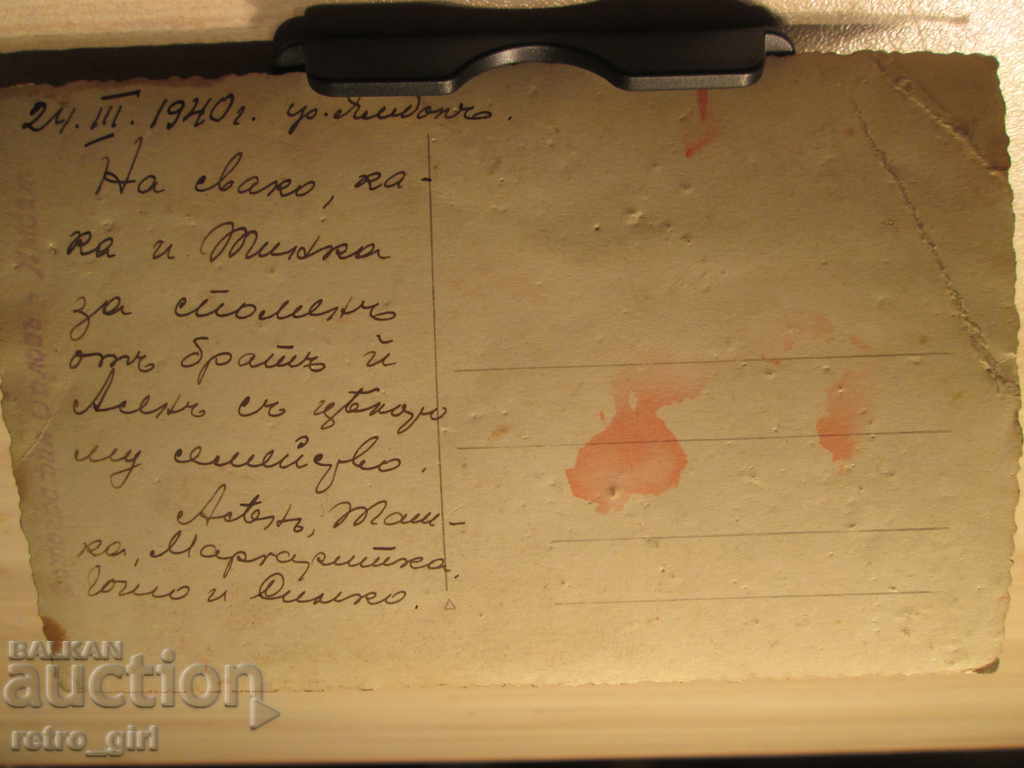 24. III. 1940 г. гр. Ямболъ.
На свако, ка-
ка и Тинка
за споменъ
отъ братъ й
Асенъ съ цѣлото
му семейство.
Асѣнъ, Таш-
ка, Маргаритка.
Гочо и Динко.
BALKAN
auction
retro_girl